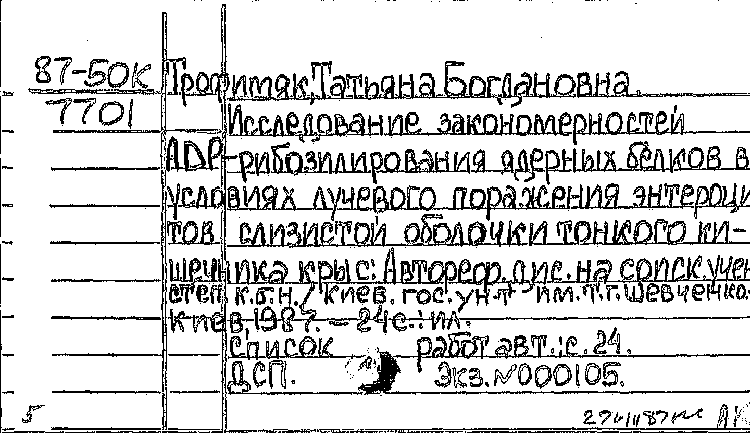 87-50К Трофимяк, Татьяна Богдановна.
7701 Исследование закономерностей
ADP-рибозилирования ядерных белков в
условиях лучевого поражения энтероци
тов слизистой оболочки тонкого ки-
шечника крыс: Автореф. дис. на соиск. учен
степ. к.б.н. / Киев. гос. ун-т им. Т.Г. Шевченко.
Киев, 1987. - 24 с.: ил.
Список работ авт.: с. 24.
ДСП. Экз. №000105.
5